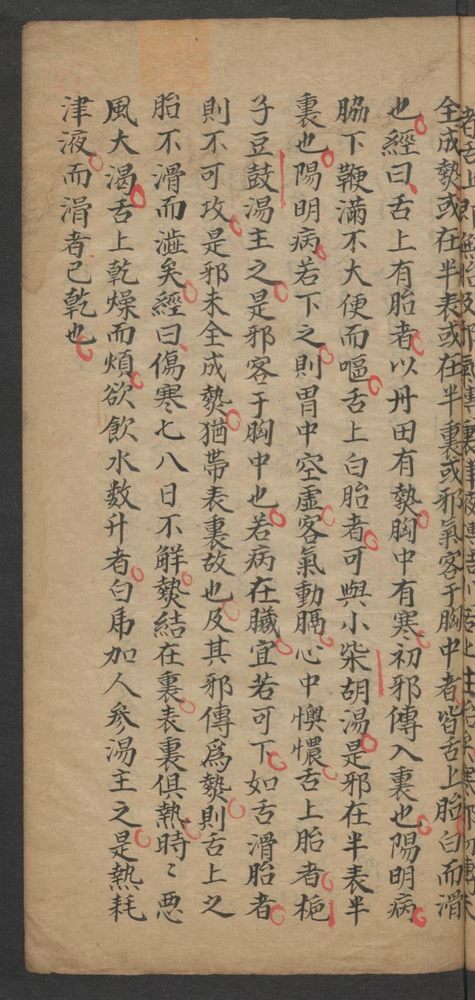 全成𤍠或在半表或在半裏或邪氣客于胸中者皆舌上胎白而滑
也經曰舌上有胎者以丹田有𤍠胸中有寒初邪傳入裏也陽明病
脇下鞕滿不大便而嘔舌上白胎者可與小柴胡湯是邪在半表半
裏也陽明病若下之則胃中空虛客氣動膈心中懊憹舌上胎者梔
子豆鼓湯主之是邪客于胸中也若病在臟宜若可下如舌滑胎者
則不可攻是邪未全成𤍠猶帶表裏故也及其邪傳爲𤍠則舌上之
胎不滑而澁矣經曰傷寒七八日不解𤍠結在裏表裏俱熱時〻惡
風大渴舌上乾燥而煩欲飲水數升者白乕加人參湯主之是熱耗
津液而滑者已乾也